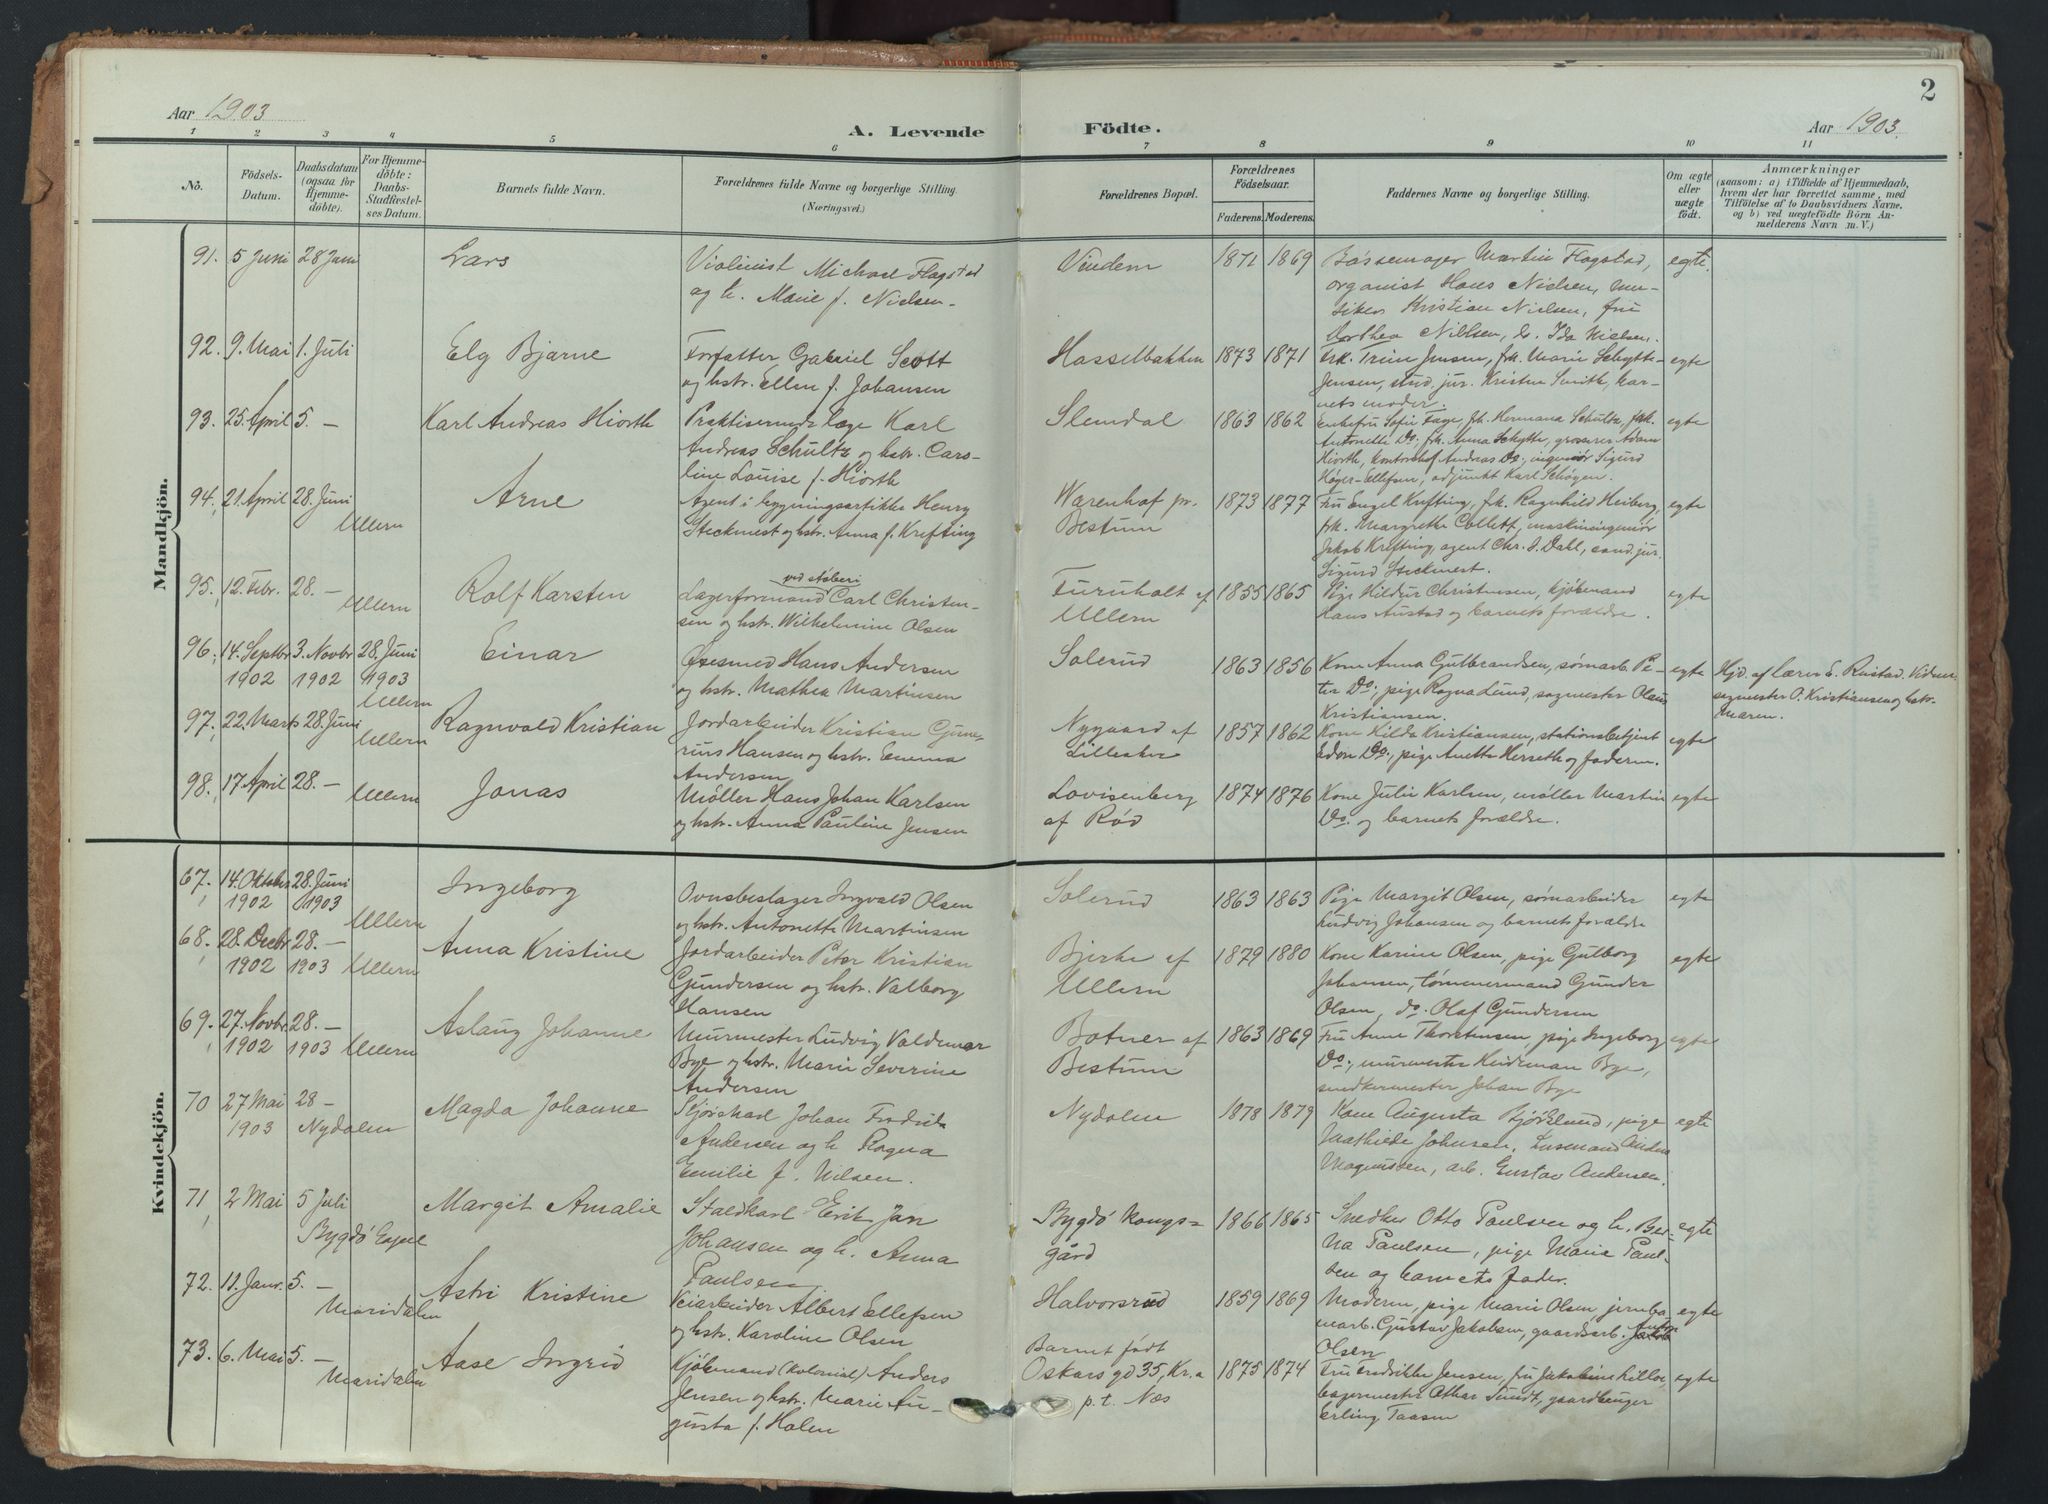 2
Aar 1903
A. Levende Födte.
Aar 1903.
1 2 3 4 5 6 7 8 9 10 11
Nö.
Födsels-Datum.
Daabsdatum (ogsaa for Hjemmedöbte).
For Hjemmedöbte: Daabs-Stadfæstelses Datum.
Barnets fulde Navn.
Forældrenes fulde Navne og borgerlige Stilling (Næringsvei.)
Forældrenes Bopæl.
Forældrenes Födselsaar.
Faderens. Moderens.
Faddernes Navne og borgerlige Stilling.
Om ægte eller uægte födt.
Anmærkninger
(saasom: a) i Tilfælde af Hjemmedaab,
hvem der har forrettet samme, med
Tilföielse af to Daabsvidners Navne,
og b) ved uægtefödte Börn An-
melderens Navn m. V.)
Mandkjön.
91. 5 Juni 28 Juni Lars Violinist Michael Flagstad Vindern 1871 1869 Bøssemager Martin Flagstad, egte.
og h. Marie f. Nielsen. organist Hans Nielsen, mu-
siker Kristian Nielsen, fru
Dorthea Nielsen, h. Ida Nielsen.
92. 9. Mai 1. Juli Elg Bjarne Forfatter Gabriel Scott Hasselbakken 1873 1871 Frk. Trine Jensen, frk. Marie Schytte- egte
og hstr. Ellen f. Johansen Jensen, stud. jur. Kristen Smith, bar-
nets moder.
93. 25. April 5. — Karl Andreas Hiorth Praktiserende læge Karl Slemdal 1863 1862 Enkefru Sofie Fage, frk. Hermana Schultz, frk. egte
Andreas Schultz og hstr. Caro- Antonette Do. frk. Anna Schytte, grosserer Adam
line Louise f. Hiorth Hiorth, kontorchef Andreas Do., ingeniør Sigurd
Høyer-Ellefsen, adjunkt Karl Schøyen.
94. 21. April 28. Juni Ullern Arne Agent i bygningsartikler Henry Wærenhof pr. 1873 1877 Fru Engel Krefting, frk. Ragnhild Heiberg, egte
Steckmest og hstr. Anna f. Krefting Bestum frk. Margrethe Collett, maskiningeniør
Jakob Krefting, agent Chr. J. Dahl, cand. jur.
Sigurd Steckmest.
95. 12. Febr. 28. — Ullern Rolf Karsten Lagerformand ved støberi Carl Christen- Furuholt af 1855 1865 Pige Hildur Christensen, kjøbmand egte
sen og hstr. Wilhelmine Olsen Ullern Hans Austad og barnets forældre.
96. 14. Septbr 3. Novbr 28. Juni Einar Øxesmed Hans Andersen Solerud 1863 1856 Kone Anna Gulbrandsen, sømarb. Pe- egte Hjd. af lærer E. Rustad. Vidner
1902 1902 1903 Ullern og hstr. Mathea Martinsen ter Do., pige Ragna Lund, sagmester Olaus sagmester O. Kristiansen og hstr.
Kristiansen. Maren.
97. 22. Marts 28. Juni Ullern Ragnvald Kristian Jordarbeider Kristian Gune- Nygaard af 1857 1862 Kone Hilda Kristiansen, stationsbetjent egte
rius Hansen og hstr. Emma Lilleaker Edon Do., pige Anette Herseth og faderen.
Andersen
98. 17. April 28. — Ullern Jonas Møller Hans Johan Karlsen Lovisenberg 1874 1876 Kone Julie Karlsen, møller Martin egte
og hstr. Anna Pauline Jensen af Rød Do. og barnets forældre.
Kvindekjön.
67. 14. Oktober 28. Juni Ingeborg Ovnsbeslager Ingvald Olsen Solerud 1863 1863 Pige Margit Olsen, sømarbeider egte
1902 1903 Ullern og hstr. Antonette Martinsen Ludvig Johansen og barnets forældre
68. 28. Decbr 28. — Anna Kristine Jordarbeider Peter Kristian Bjerke af 1879 1880 Kone Karine Olsen, pige Gulborg egte
1902 1903 Ullern Gundersen og hstr. Valborg Ullern Johansen, tømmermand Gunder
Hansen Olsen, do. Olaf Gundersen
69. 27. Novbr. 28. — Aslaug Johanne Murmester Ludvig Valdemar Botner af 1863 1869 Fru Anne Thorstensen, pige Ingeborg egte
1902 1903 Ullern Bye og hstr. Marie Severine Bestum Do., murmester Bye,
Andersen snedkermester Johan Bye
70 27 Mai 28 — Magda Johanne Kjørekarl Johan Fredrik Nydalen 1878 1879 Kone Augusta Bjørklund, pige egte
1903 Nydalen Andersen og h. Ragna Mathilde Johnsen, Anders
Emilie f. Nilsen. Magnussen, arb. Gustav Andersen.
71. 2 Mai 5 Juli Margit Amalie Staldkarl Erik Jan Bygdö Kongs- 1866 1865 Snedker Otto Paulsen og h. Ber- egte
Bygdö Johansen og h. Anna gård na Paulsen, pige Marie Paul-
Paulsen sen og barnets fader.
72. 11. Janr. 5. — Maridalen Astri Kristine Veiarbeider Albert Ellefsen Halvorsrud 1859 1869 Moderen, pige Marie Olsen jernba egte
og hstr. Karoline Olsen nearb. Gustav Jakobsen, gaardsarb. Anton
Olsen
73. 6. Mai 5. — Maridalen Aase Ingrid Kjøbmand (kolonial) Anders Barnet født 1875 1874 Fru Fredrikke Jensen, fru Jakobine Lilloe, egte
Jensen og hstr. Marie Au- Oskars gd 35, Kr.a bagermester Othar Sundt, gaardbruger
gusta f. Holen p. t. Næs Erling Taasen